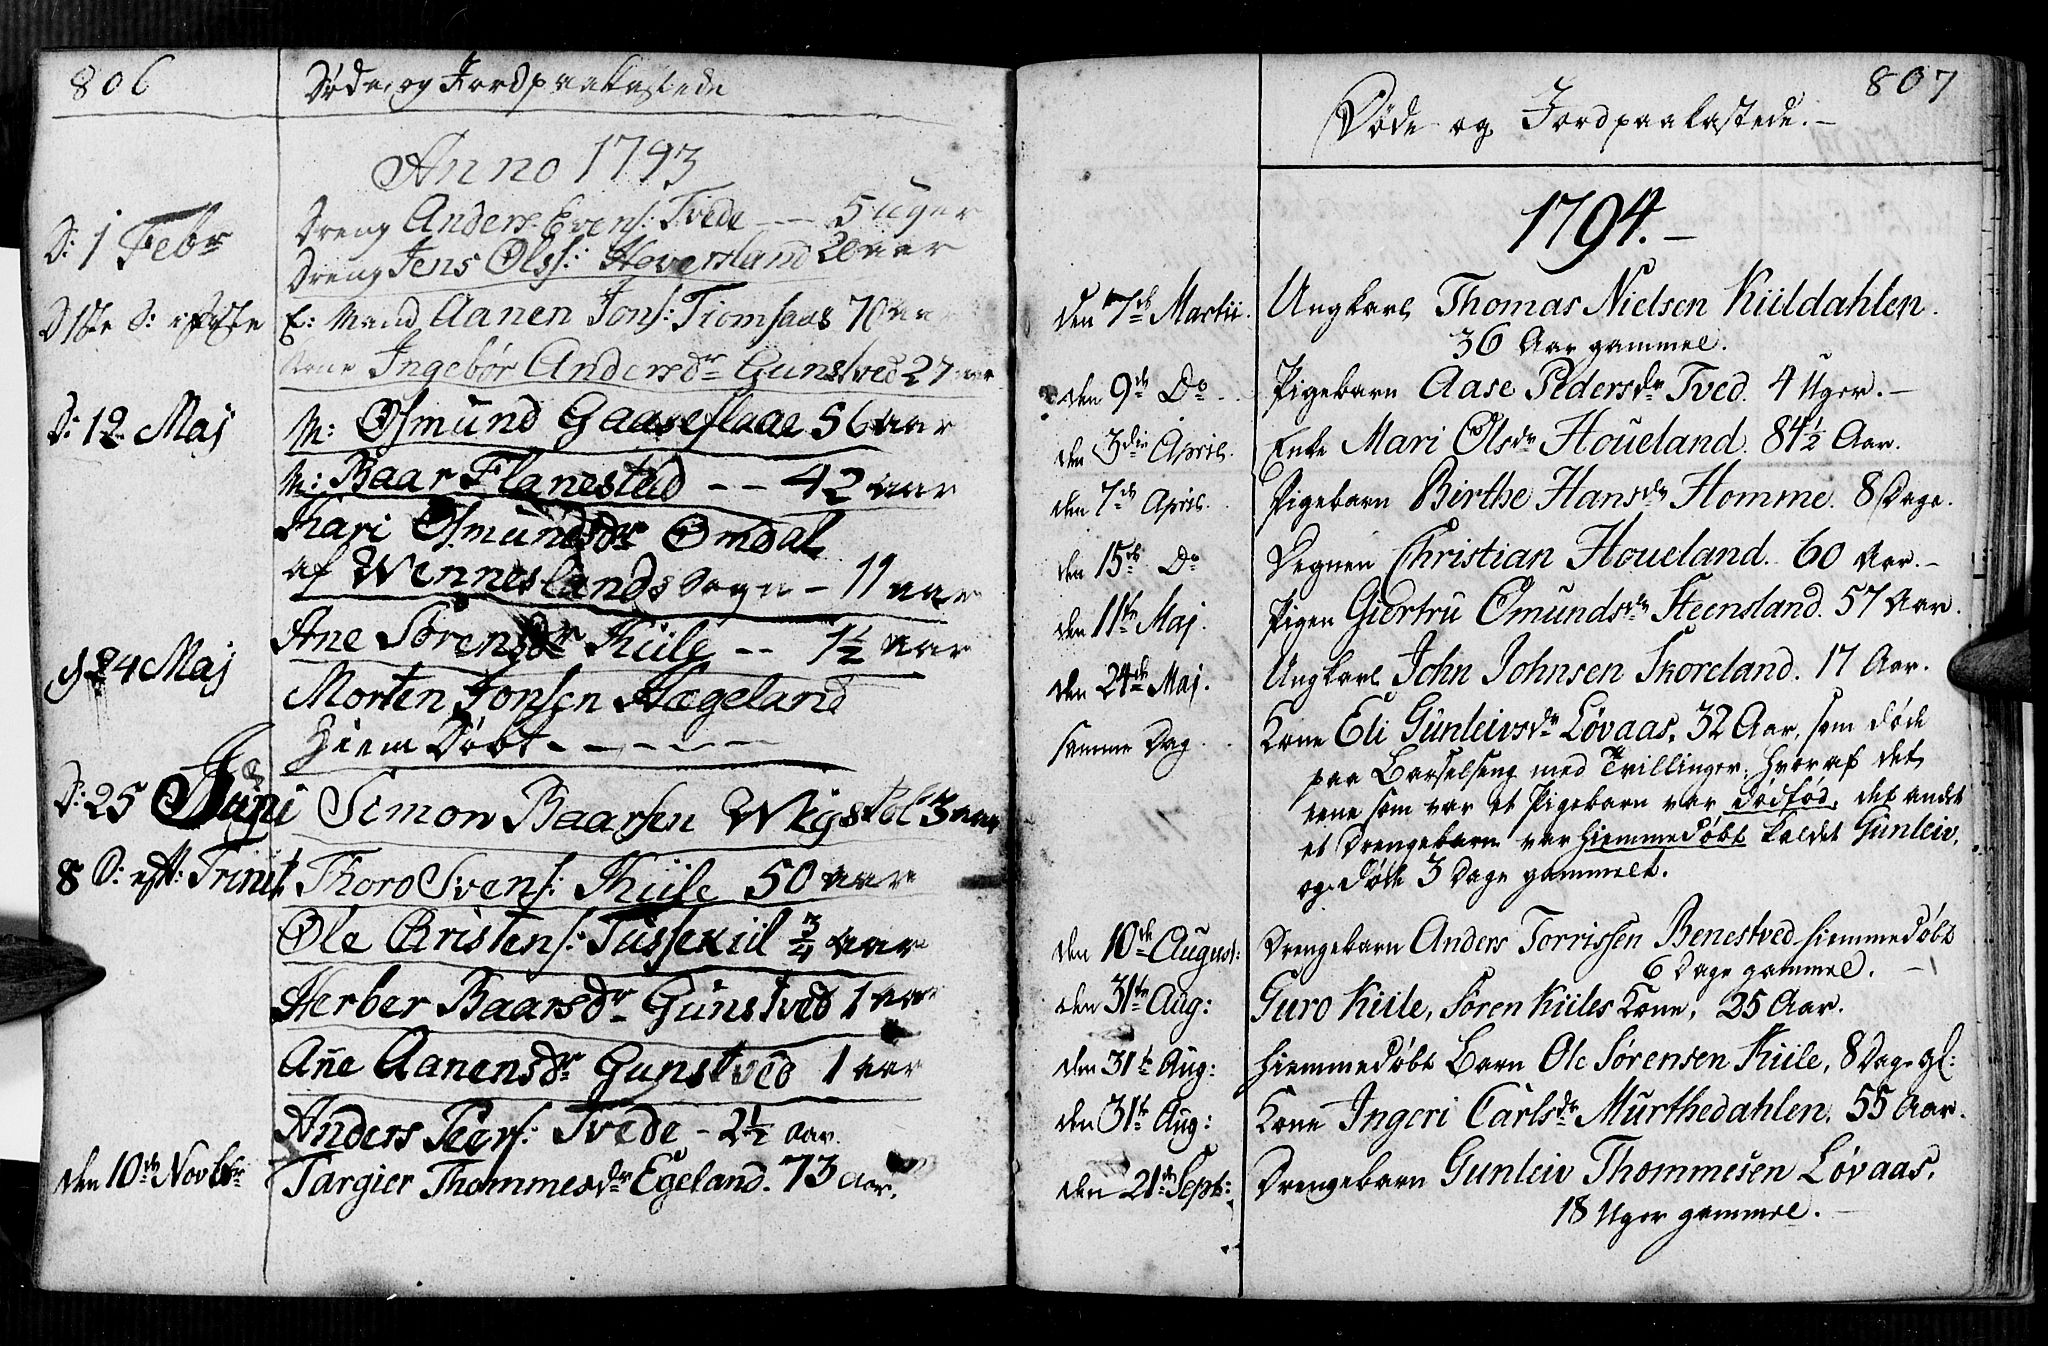 806
Døde, og Jordpaakastede
Anno 1793
D: 1 Febr
Dreng Anders Evens: Tvede -- 5 uger
Dreng Jens Olss: Hoversland 20 aar
D 1ste S: i Faste
E: Mand Aanen Jons: Tiomsaas 70 aar
Kone Ingebør Andersdr Gunstved 27 aar
D: 12 Maj
M: Osmund Gaaseflaae 56 aar
M: Baar Flanestad -- 42 aar
Kari Osmundsdr Omdal
af Wennes lands Sogn - 11 aar
Ane Sørensdr Kiile -- 1½ aar
d 24 Maj
Morten Jonsen Hægeland
Hiem Døbt - - - - -
D: 25 Juni
Simon Baarsen Wigstøl 3 aar
8 S: eft: Trinit
Thoro Svens: Kiile 50 aar
Ole Cristens: Tussekiil ¾ aar
Herber Baarsdr Gunstved 1 aar
Ane Aanensdr Gunstved 1 aar
Anders Peers: Tvede - 2½ aar.
den 10de Novbr
Targier Thommesdr Egeland. 73 aar.
807
Døde og Jordpaakastede.-
1794.-
den 7de Martii.
Ungkarl Thomas Nielsen Kiildahlen.
36 Aar gammel.
den 9de Do
Pigebarn Aase Pedersdr Tved. 4 Uger.-
den 3die April.
Enke Mari Olsdr Houeland. 84½ Aar.
den 7de April.
Pigebarn Birthe Hansdr Homme. 8 Dage.
den 15de Do
Degnen Christian Houeland. 60 Aar.-
den 11te Maj.
Pigen Giertru Omundsdr Steensland. 57 Aar.
den 24de Maj.
Ungkarl John Johnsen Skoreland. 17 Aar.
samme Dag
Kone Eli Gunleivsdr Løvaas, 32 Aar, som døde
paa Barselseng med Tvillinger, hvoraf det
eene som var et Pigebarn var dødfød, det andet
et Drengebarn var hiemmedøbt kaldet Gunleiv,
og døde 3 Dage gammelt.
den 10de August:
Drengebarn Anders Torrissen Benestved hiemmedøbt
6 Dage gammel. -
den 31te Aug:
Guro Kiile, Søren Kiiles Kone, 25 Aar.
den 31te Aug:
Hiemmedøbt Barn Ole Sørensen Kiile, 8 Dage gl:
den 31te Aug:
Kone Ingeri Carlsdr Murthedahlen. 55 Aar.
den 21de Sept:
Drengebarn Gunleiv Thommesen Løvaas.
18 Uger gammel.-